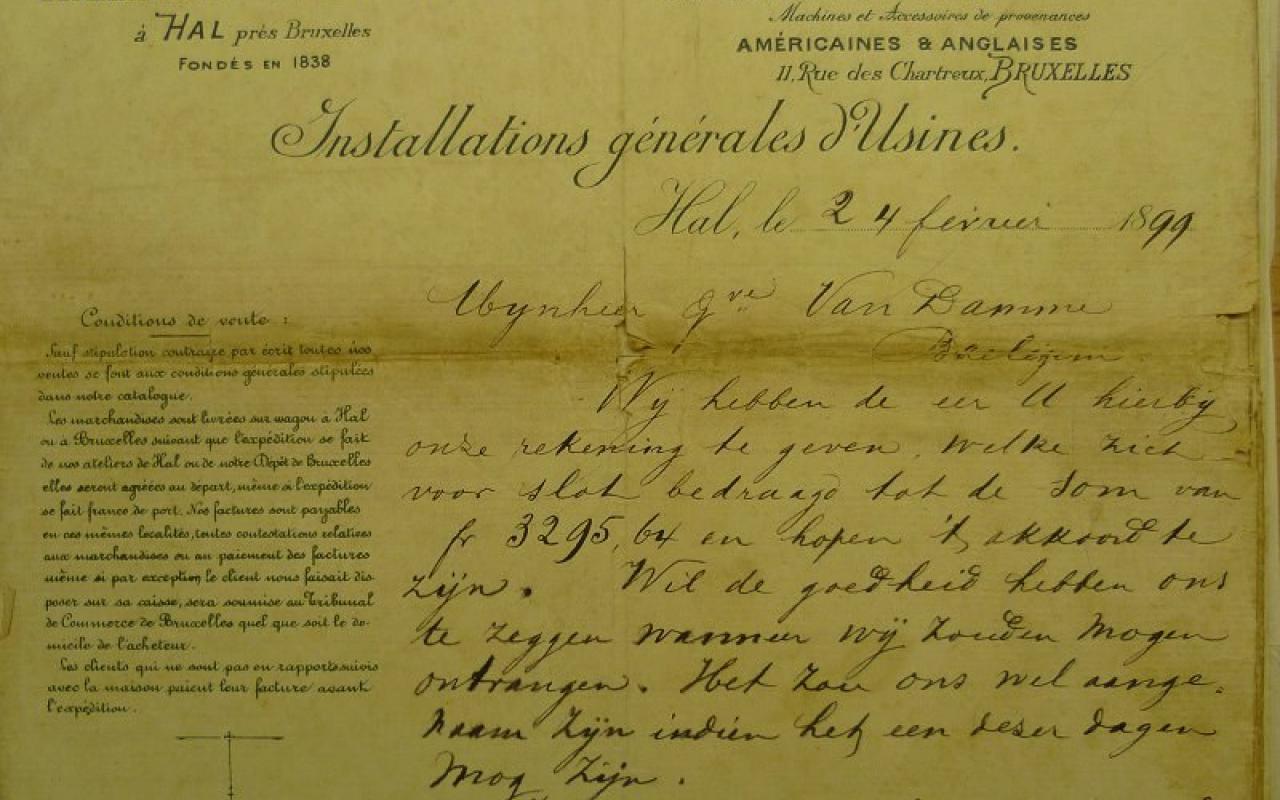 à HAL près Bruxelles
FONDÉS EN 1838
Machines et Accessoires de provenances
AMÉRICAINES & ANGLAISES
11, Rue des Chartreux, BRUXELLES
Installations générales d'Usines.
Hal, le 24 février 1899
Mynheer Gve Van Damme
Conditions de vente :
Sauf stipulation contraire par écrit toutes nos
ventes se font aux conditions générales stipulées
dans notre catalogue.
Les marchandises sont livrées sur wagon à Hal
ou à Bruxelles suivant que l'expédition se fait
de nos ateliers de Hal ou de notre Dépôt de Bruxelles
elles seront agréées au départ, même si l'expédition
se fait franco de port. Nos factures sont payables
en ces mêmes localités, toutes contestations relatives
aux marchandises ou au paiement des factures
même si par exception le client nous faisait dis-
poser sur sa caisse, sera soumise au Tribunal
de Commerce de Bruxelles quel que soit le do-
micile de l'acheteur.
Les clients qui ne sont pas en rapports suivis
avec la maison paient leur facture avant
l'expédition.
Wij hebben de eer U hierbij
onze rekening te geven. Welke zich
voor slot bedraagd tot de Som van
fr 3295,64 en hopen 't akkoord te
zijn. Wil de goedheid hebben ons
te zeggen wanneer wij zouden Mogen
ontvangen. Het zou ons wel aange-
naam zijn indien het een dezer dagen
Mog zijn.